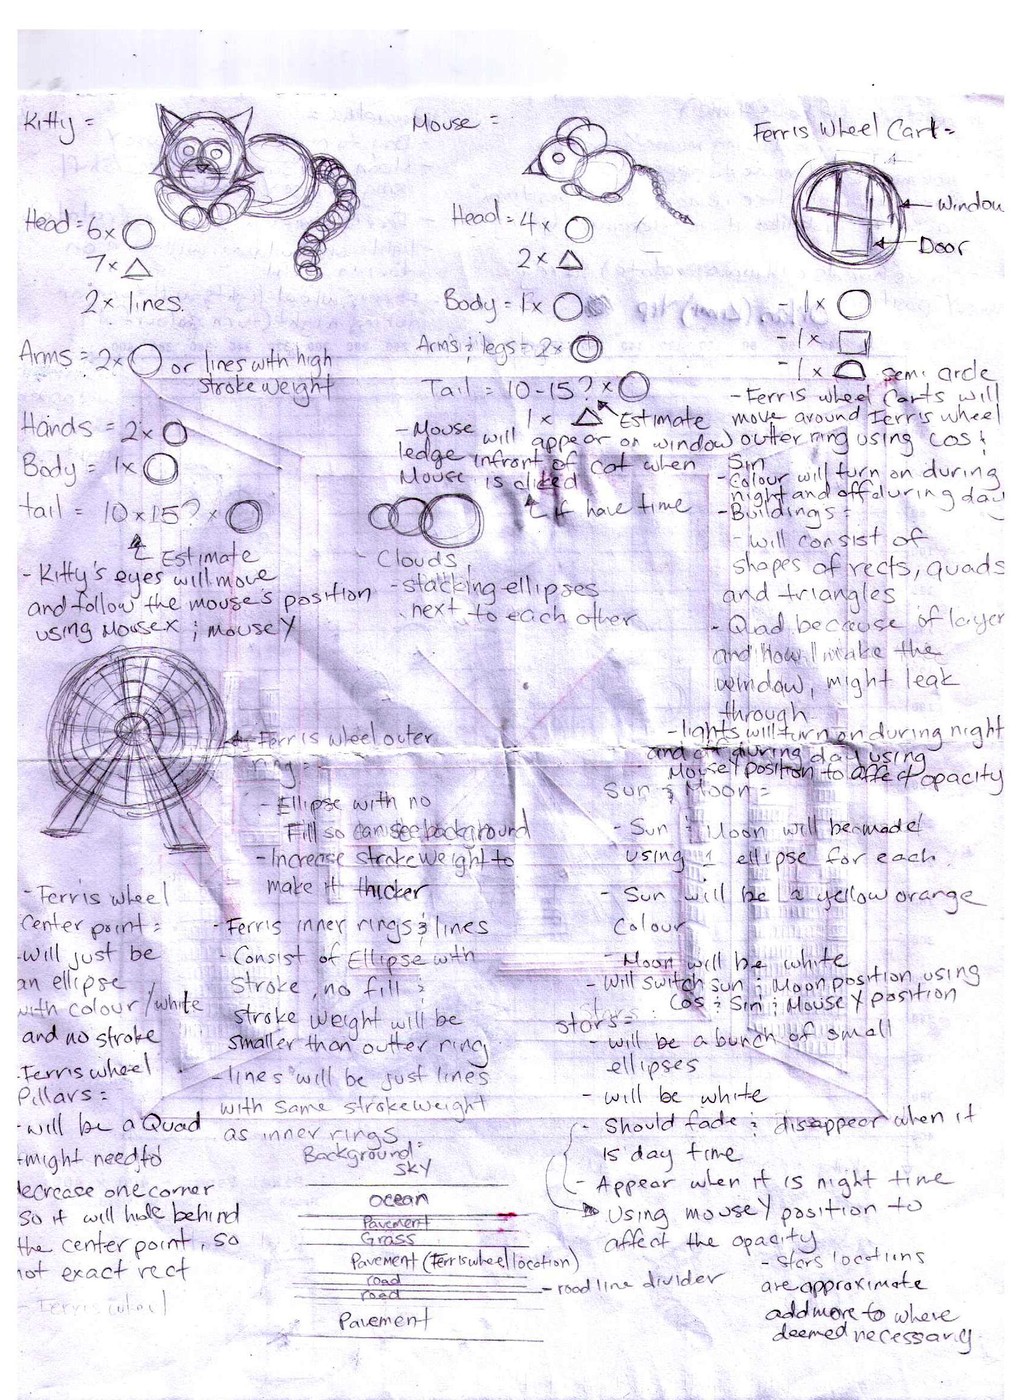 Kitty =
Head = 6x
7x
2x lines.
Arms = 2x or lines with high
stroke weight
Hands = 2x
Body = 1x
tail = 10x15? x
Estimate
- Kitty's eyes will move
and follow the mouse's position
using MouseX ; mouseY
Mouse =
Head = 4x
2x
Body = 1x
Arms ; legs = 2x
Tail = 10-15? x
1x Estimate
- Mouse will appear on window
ledge infront of cat when
Mouse is clicked
if have time
Clouds
- stacking ellipses
next to each other
Ferris Wheel Cart =
Window
Door
- 1x
- 1x
- 1x semi circle
- Ferris wheel Carts will
move around Ferris wheel
outer ring using cos ;
Sin
- Colour will turn on during
night and off during day
- Buildings =
- will consist of
shapes of rects, quads
and triangles
- Quad because of layer
and how I make the
window, might leak
through
- lights will turn on during night
and off during day using
MouseY position to affect opacity
Ferris wheel outer
ring =
- Ellipse with no
Fill so can see background
- Increase stroke weight to
make it thicker
- Ferris wheel
Center point =
- will just be
an ellipse
with colour/white
and no stroke
- Ferris wheel
Pillars =
- will be a Quad
- might need to
decrease one corner
so it will hide behind
the center point, so
not exact rect
- Ferris wheel
- Ferris inner rings ; lines
- Consist of Ellipse with
Stroke, no fill ;
stroke weight will be
smaller than outter ring
- lines will be just lines
with same strokeweight
as inner rings
Background =
SKY
ocean
Pavement
Grass
Pavement (Ferris wheel location)
road
road
- road line divider
Pavement
Sun ; Moon =
- Sun ; Moon will be made
using 1 ellipse for each
- Sun will be a yellow orange
Colour
- Moon will be white
- Will switch sun ; Moon position using
Cos ; Sin ; MouseY position
stars =
- will be a bunch of small
ellipses
- will be white
- Should fade ; disappear when it
is day time
- Appear when it is night time
Using mouseY position to
affect the opacity
- stars locations
are approximate
add more to where
deemed necessary.